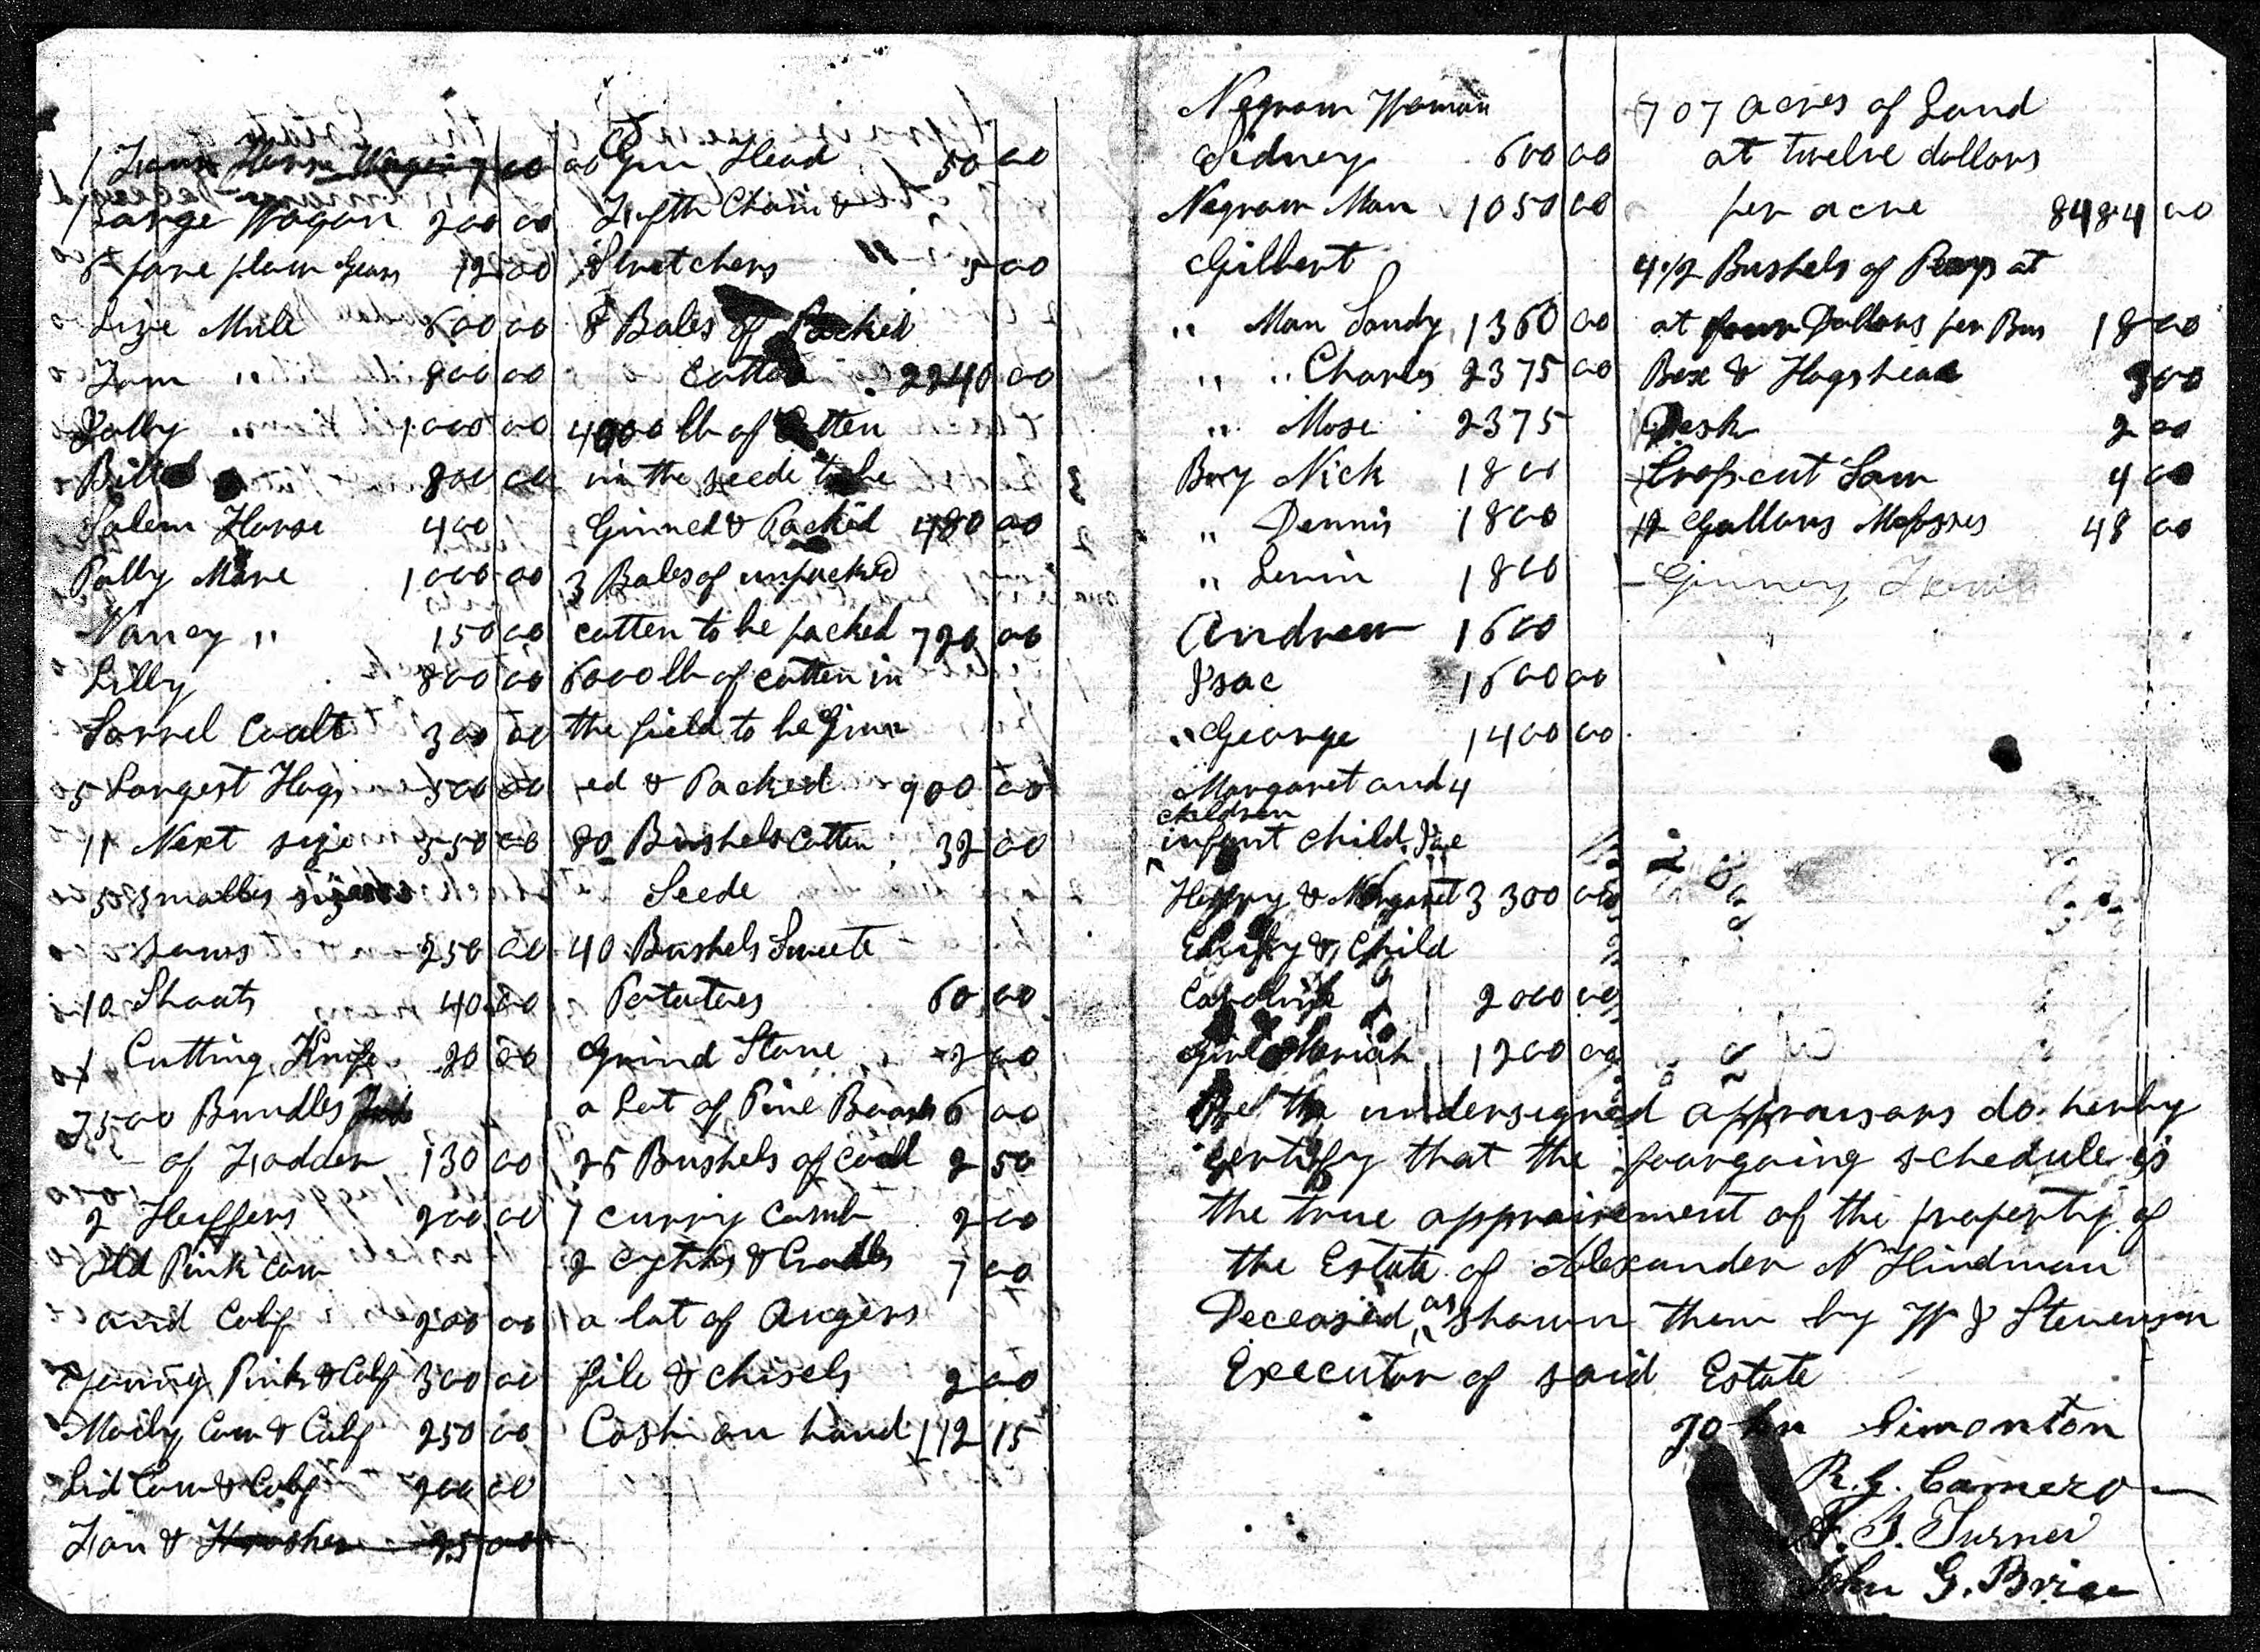 1 Large Wagon 200 00
pare plow Gears 12 00
Lize Mule 600 00
Tom " 800 00
Jolly " 1000 00
Bill 800 00
Salem Horse 400
Polly Mare 1000 00
Nancy " 150 00
Lilly 800 00
Sorrel Coalt 300 00
5 Largest Hogs 500 00
11 Next size 550 00
5 Smalles size
Sows 250 00
10 Shoats 40 00
1 Cutting Knife 20 00
7500 Bundles
of Fodder 130 00
2 Heiffers 200 00
Old Pink Cow
and Calf 200 00
Young Pink & Calf 300 00
Moily Cow & Calf 250 00
Lid Cow & Calf 200 00
Fan & Thrasher 25 00
Gin Head 50 00
Fifth Chain &
Stretchers " 5 00
8 Bales of Packed
Cotton 2240 00
4000 lb of Cotten
in the seede to be
Ginned & Packed 480 00
3 Bales of unpacked
cotten to be packed 720 00
6000 lb of cotten in
the field to be Ginn
ed & Packed 900 00
80 Bushels Cotten 32 00
Seede
40 Bushels Sweete
Potatoes 60 00
Grind Stone 2 00
a Lot of Pine Boards 6 00
25 Bushels of Coal 2 50
1 curry Comb 2 00
2 Cythes & Cradles 7 00
a lot of Augers
file & chisels 2 00
Cash on hand 112 15
Negrow Woman
Sidney 600 00
Negrow Man 1050 00
Gilbert
" Man Sandy 1360 00
" " Charles 2375 00
" Mose 2375
Boy Nick 1800
" Dennis 1800
" Levin 1800
Andrew 1600
Isac 1600 00
" George 1400 00
Margaret and 4
children
infant child
Henry & Margaret 3300 00
& Child
Caroline 2000 00
Girl Mariah 1200 00
707 acres of Land
at twelve dollars
per acre 8484 00
4 1/2 Bushels of Peas at
at four Dollars per Bus 18 00
Box & Hogshead 3 00
Desk 2 00
Cropcut Saw 4 00
12 Gallons Molasses 48 00
We the undersigned appraisars do herby
certify that the foargoing schedule is
the true appraisement of the property of
the Estate of Alexander N Hindman
Deceased as shown them by W J Stevenson
Executor of said Estate
John Simonton
R. G. Camero
Turner
John G. Brice